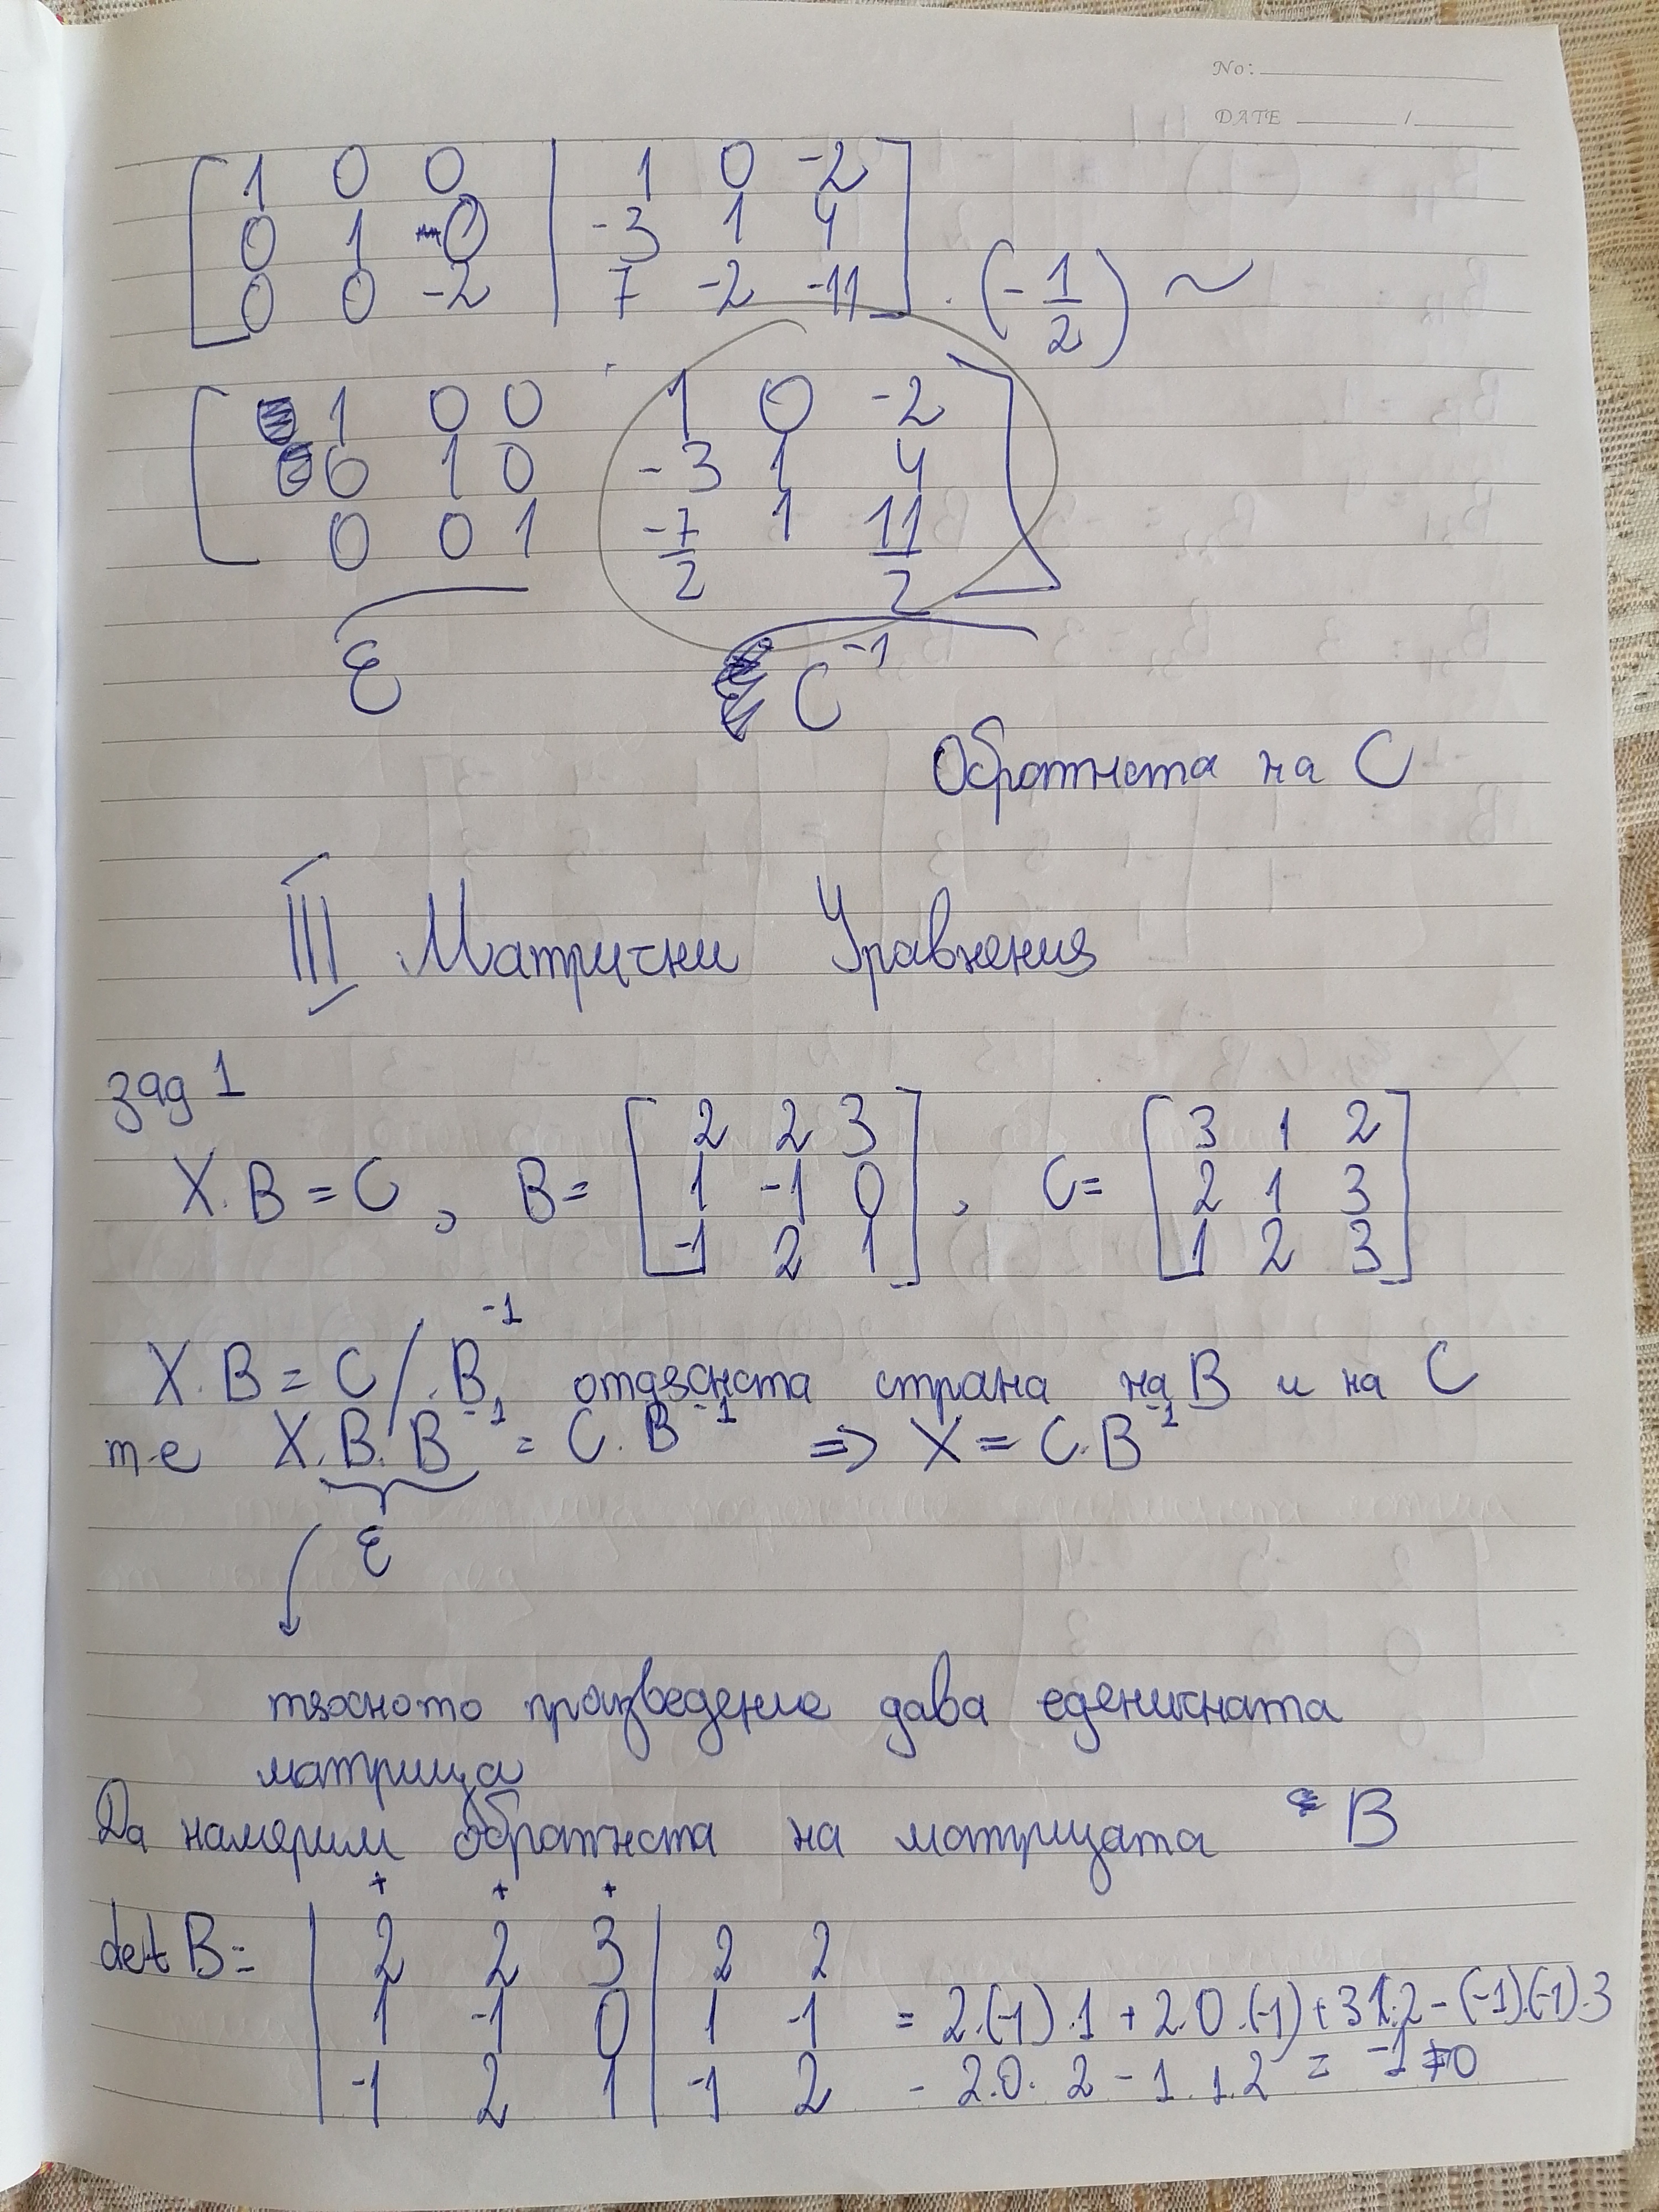 No:
DATE /
[ 1 0 0 | 1 0 -2 ]
[ 0 1 0 | -3 1 4 ]
[ 0 0 -2 | 7 -2 -11 ] . (- 1/2) ~
[ 1 0 0 1 0 -2 ]
[ 0 1 0 -3 1 4 ]
[ 0 0 1 -7/2 1 11/2 ]
Ɛ C⁻¹
Обратната на C
III Матрични Уравнения
зад 1
X.B = C , B = [ 2 2 3 ; 1 -1 0 ; -1 2 1 ] , C = [ 3 1 2 ; 2 1 3 ; 1 2 3 ]
X.B = C / .B⁻¹ отдясната страна на B и на C
т-е X.B.B⁻¹ = C.B⁻¹ => X = C.B⁻¹
Ɛ
тяхното произведение дава еденичната
матрица
Да намерим обратната на матрицата B
+ + +
det B = | 2 2 3 | 2 2
| 1 -1 0 | 1 -1 = 2.(-1).1 + 2.0.(-1) + 3.1.2 - (-1).(-1).3
| -1 2 1 | -1 2 - 2.0.2 - 1.1.2 = -1 ≠ 0